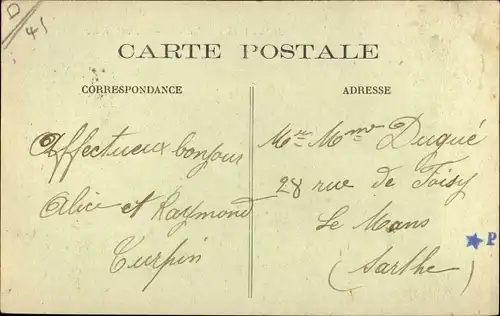 D
45
CARTE POSTALE
CORRESPONDANCE
ADRESSE
Affectueux bonjour
Alice et Raymond
Turpin
Mr Mme Duqué
28 rue de Foisy
Le Mans
(Sarthe)
P